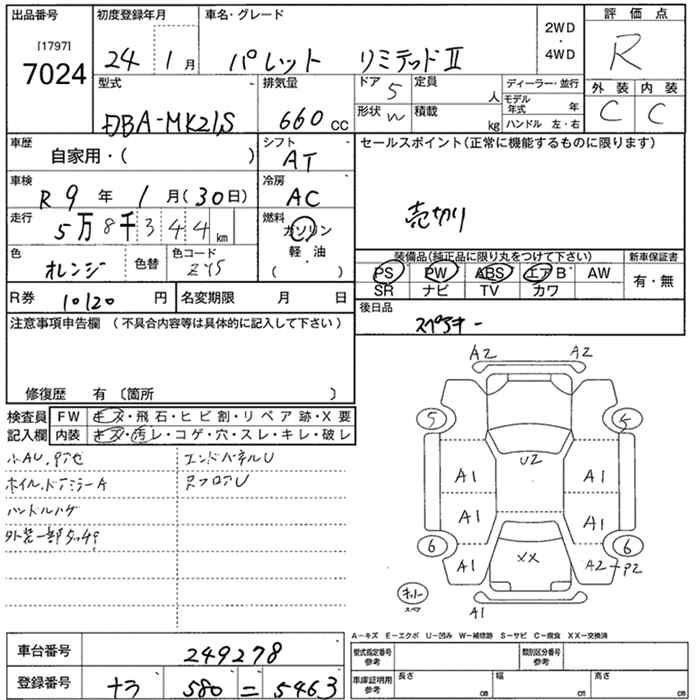 出品番号
[1797]
7024
初度登録年月
24 1月
車名・グレード
パレット リミテッドⅡ
2WD
・
4WD
評価点
R
外装 内装
C C
型式
DBA-MK21S
排気量
660cc
ドア 5
形状 W
定員 人
積載 kg
ディーラー・並行
モデル年式 年
ハンドル 左・右
車歴
自家用・( )
シフト
AT
セールスポイント(正常に機能するものに限ります)
売切り
車検
R9年 1月(30日)
冷房
AC
走行
5万8千344km
燃料
ガソリン
軽・油
( )
色
オレンジ
色替
色コード
装備品(純正品に限り丸をつけて下さい)
PS PW ABS エアB AW
SR ナビ TV カワ
新車保証書
有・無
R券 10120円
名変期限 月 日
後日品
スペアキー
注意事項申告欄 (不具合内容等は具体的に記入して下さい)
修復歴 有〔箇所 〕
検査員
記入欄
FW キズ・飛石・ヒビ割・リペア跡・X要
内装 キズ・汚レ・コゲ・穴・スレ・キレ・破レ
エンドパネルU
ホイル,ドアミラーA
RフロアU
ハンドルハゲ
外装一部タッチP
A2 A2
5 5
U2
A1 A1
A1 A1
6 6
A1 XX A2 P2
キー
スペア
A1
A-キズ E-エクボ U-凹み W-補修跡 S-サビ C-腐食 XX-交換済
車台番号 249278
登録番号 ナラ 580 ニ 5463
型式指定番号
参考
類別区分番号
参考
車庫証明用
参考
長さ cm
幅 cm
高さ cm